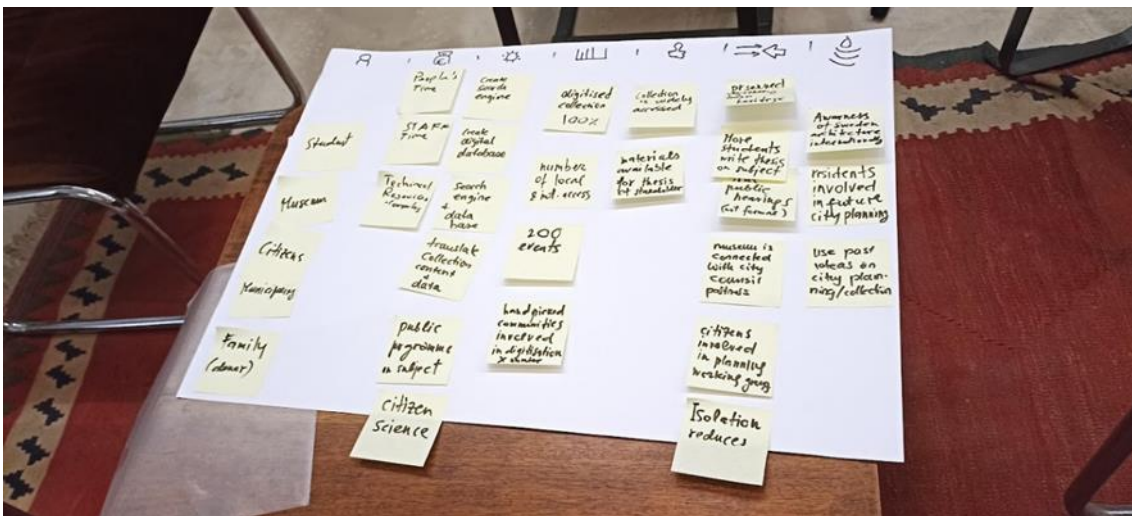 Student
Museum
Citizens
Municipacy
Family
(donor)
People's
Time
STAFF
Time
Technical
Resources
Create
Search
engine
create
digital
database
Search
engine
+
data
base
translate
Collection
content
+
data
public
programme
on subject
citizen
science
digitised
collection
100%
number
of local
& int. access
200
events
communities
involved
in digitisation
Collection
is widely
accessed
materials
available
for thesis
More
students
write thesis
on subject
public
hearings
(not formal)
museum is
connected
with city
council
citizens
involved
in planning
working group
Isolation
reduces
Awareness
of Sweden
architecture
internationally
residents
involved
in future
city planning
use past
ideas on
city plan-
ning/collection